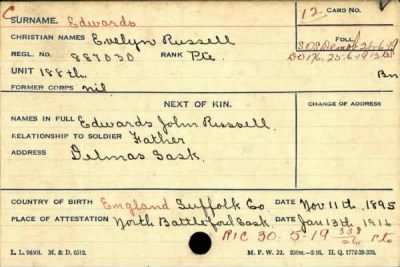 C
SURNAME. Edwards
12 CARD NO.
CHRISTIAN NAMES Evelyn Russell
FOLL
REGL. NO. 887030 RANK Pte
S.O.S. Demob 25-6-19
UNIT 188th. Bn
FORMER CORPS nil
NEXT OF KIN.
CHANGE OF ADDRESS
NAMES IN FULL Edwards John Russell.
RELATIONSHIP TO SOLDIER Father
ADDRESS Delmas Sask.
COUNTRY OF BIRTH England Suffolk Co. DATE Nov 11th 1895
PLACE OF ATTESTATION North Battleford Sask. DATE Jan 13th 1916
R/C 30-5-19 333 26 Pto
L. L. 94401. M. & D. 6512. M. F. W. 22. H. Q. 1772-39-339.